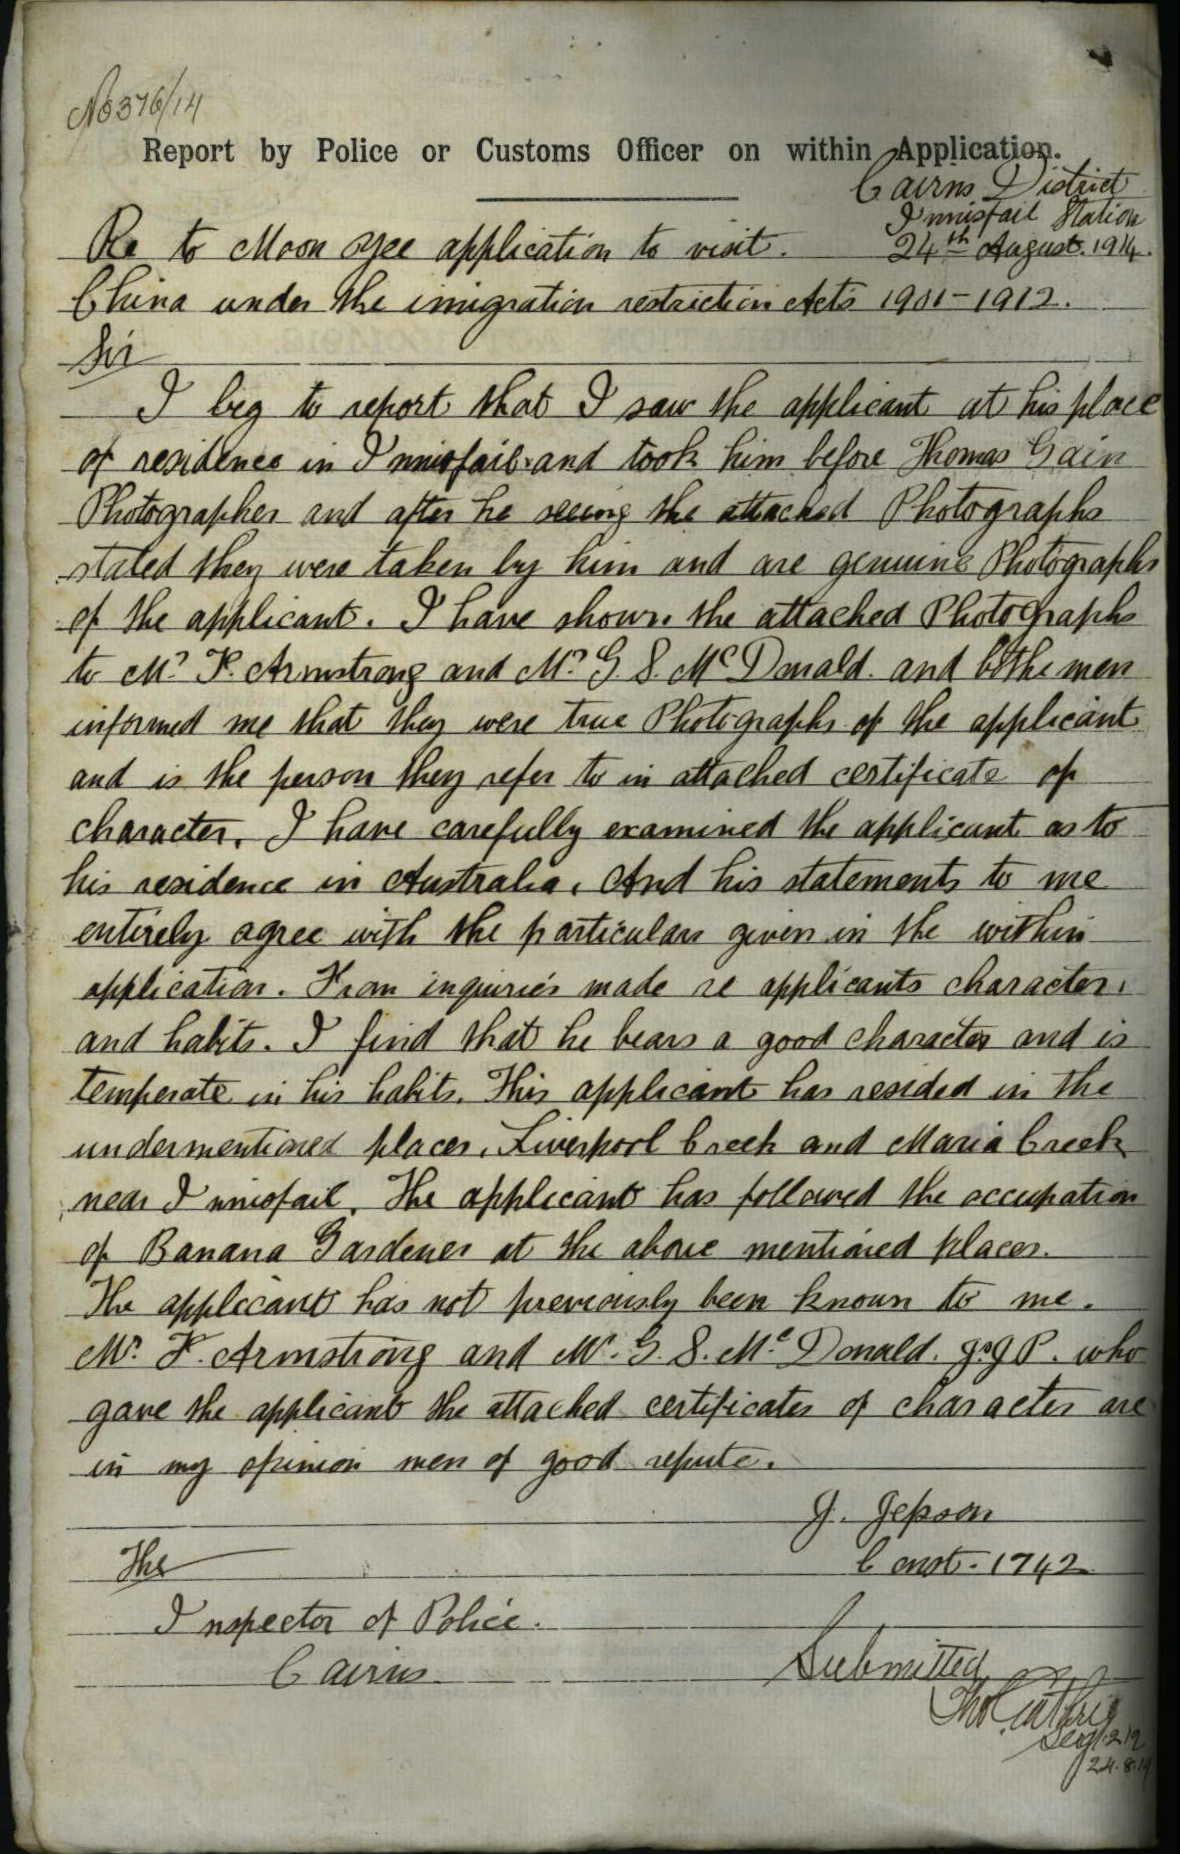 No 376/14
Report by Police or Customs Officer on within Application.
Cairns District
Innisfail Station
24th August. 1914.
Re to Moon Yee application to visit.
China under the imigration restriction Acts 1901-1912.
Sir
I beg to report that I saw the applicant at his place
of residence in Innisfail and took him before Thomas Gain
Photographer and after he seeing the attached Photographs
stated they were taken by him and are genuine Photographs
of the applicant. I have shown the attached Photographs
to Mr. F. Armstrong and Mr. G. S. McDonald. and bothe men
informed me that they were true Photographs of the applicant
and is the person they refer to in attached certificate of
character. I have carefully examined the applicant as to
his residence in Australia. And his statements to me
entirely agree with the particulars given in the within
application. From inquiries made re applicants character.
and habits. I find that he bears a good character and is
temperate in his habits. This applicant has resided in the
undermentioned places. Liverpool Creek and Maria Creek
near Innisfail. The applicant has followed the occupation
of Banana Gardener at the above mentioned places.
The applicant has not previously been known to me.
Mr. F. Armstrong and Mr. G. S. McDonald. Js.J P. who
gave the applicant the attached certificates of character are
in my opinion men of good repute.
J. Jepson
Const. 1742
The
Inspector of Police.
Cairns
Submitted
Tho Guthrie
Sergt.
24.8.14